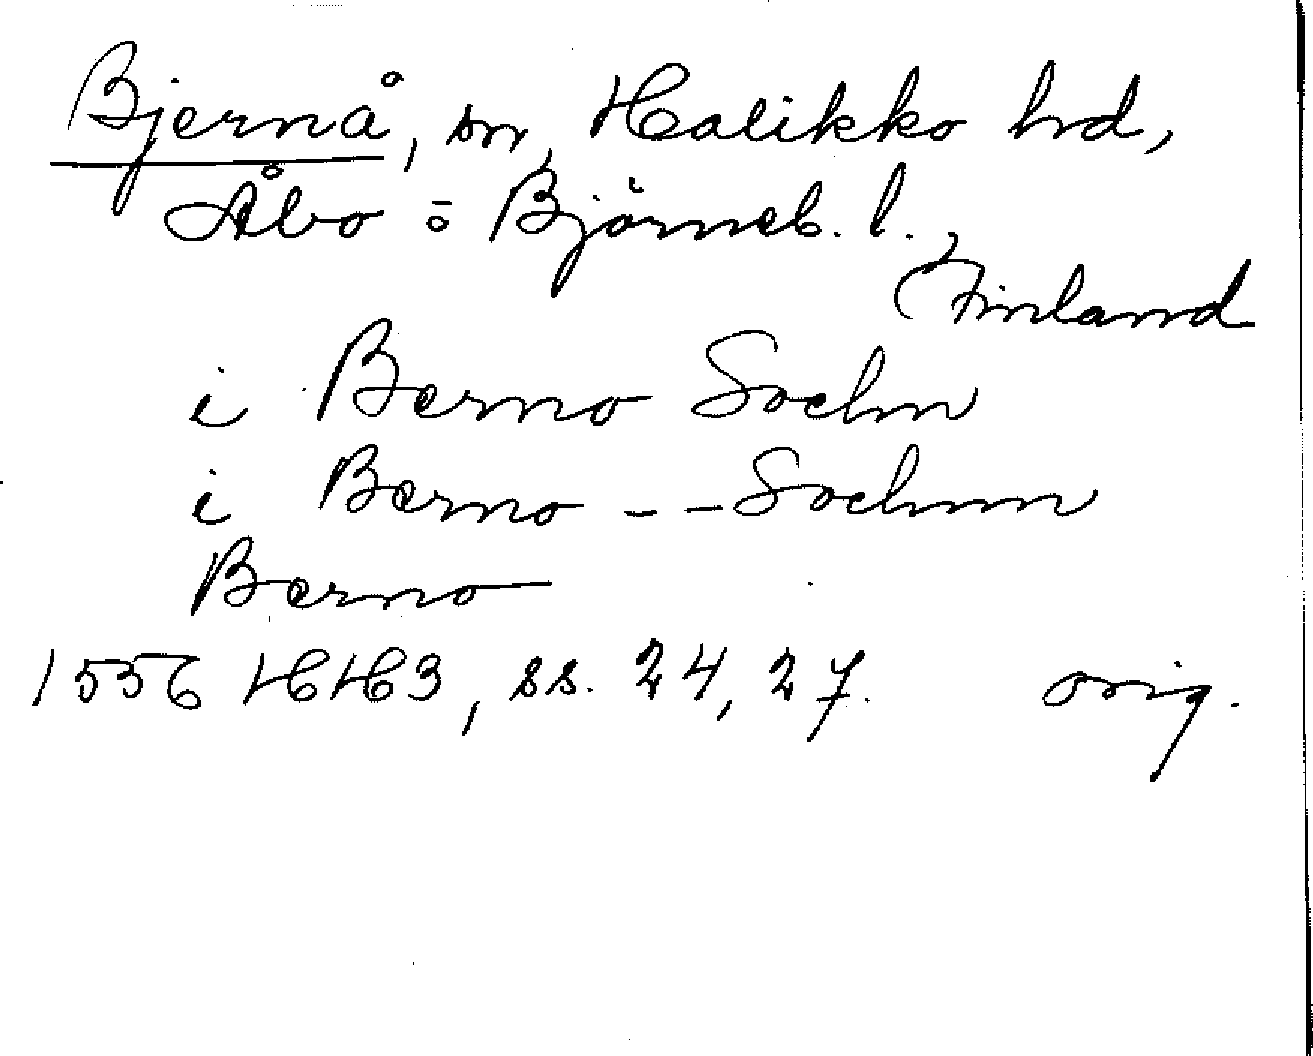 Bjernå, sn, Halikko hd,
Åbo o Björneb. l.,
Finland
i Berno Sochn
i Berno -- Sochnn
Berno
1556 HH3, ss. 24, 27. orig.